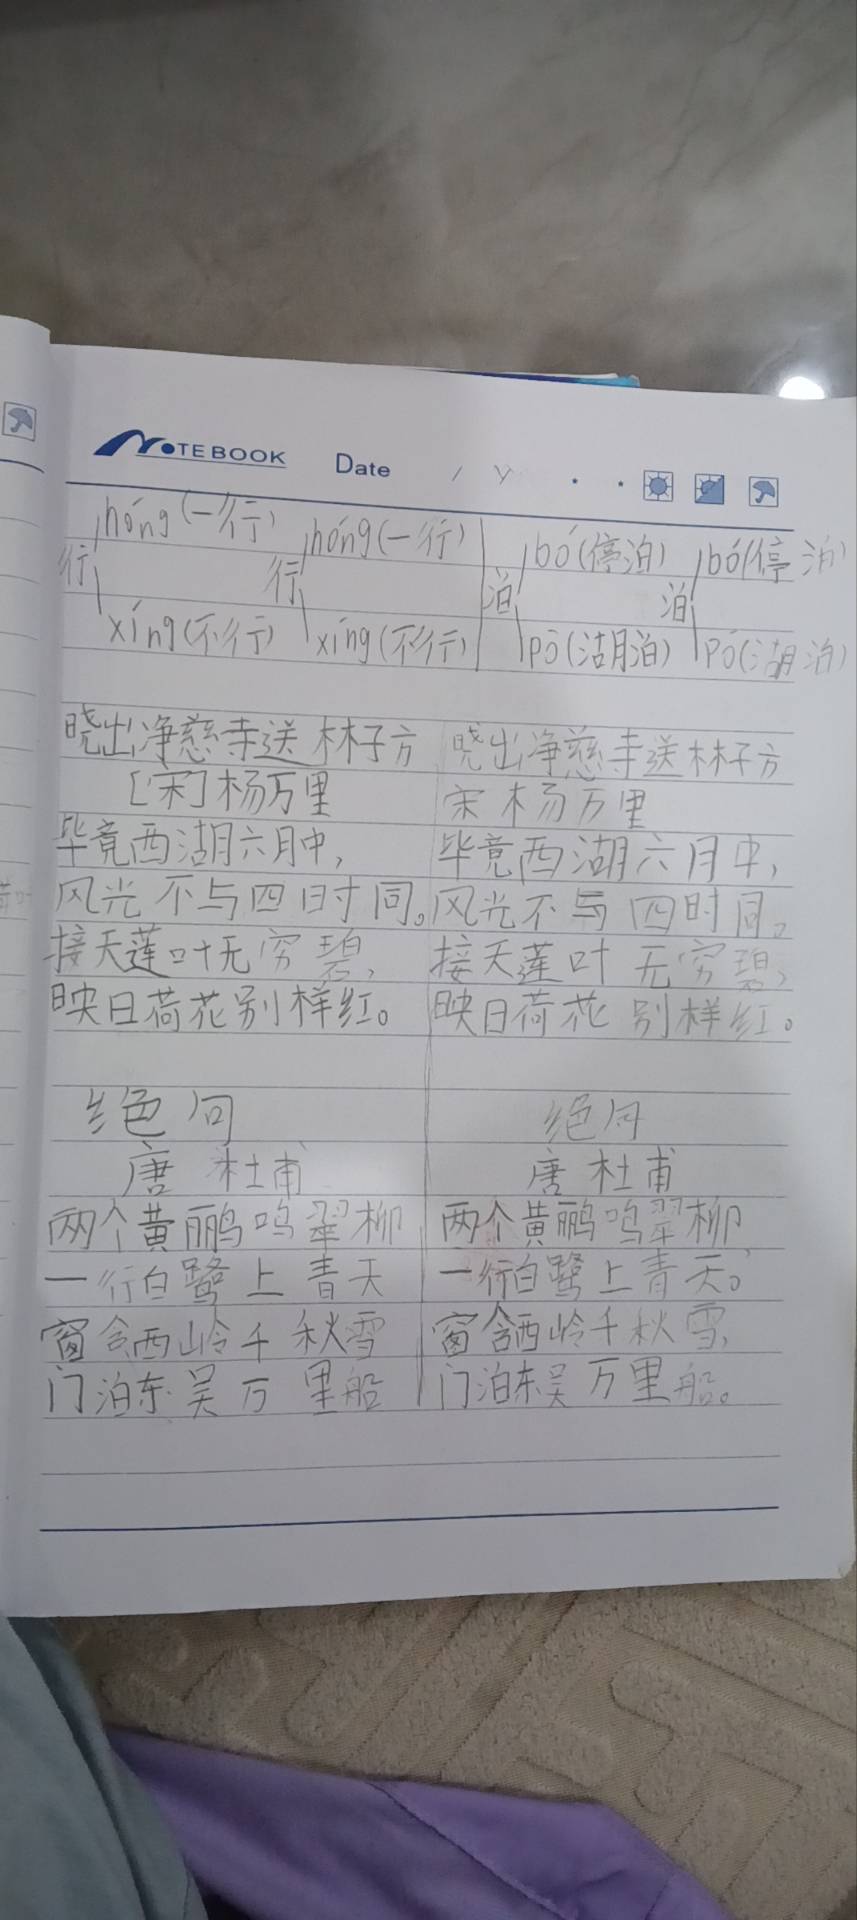 NOTEBOOK Date
háng(一行) háng(一行) bó(停泊) bó(停泊)
行 行 泊 泊
xíng(不行) xíng(不行) pō(湖泊) pō(湖泊)
晓出净慈寺送林子方 晓出净慈寺送林子方
[宋]杨万里 宋杨万里
毕竟西湖六月中, 毕竟西湖六月中,
风光不与四时同。 风光不与四时同。
接天莲叶无穷碧, 接天莲叶无穷碧,
映日荷花别样红。 映日荷花别样红。
绝句 绝句
唐 杜甫 唐 杜甫
两个黄鹂鸣翠柳 两个黄鹂鸣翠柳,
一行白鹭上青天 一行白鹭上青天。
窗含西岭千秋雪 窗含西岭千秋雪,
门泊东吴万里船 门泊东吴万里船。